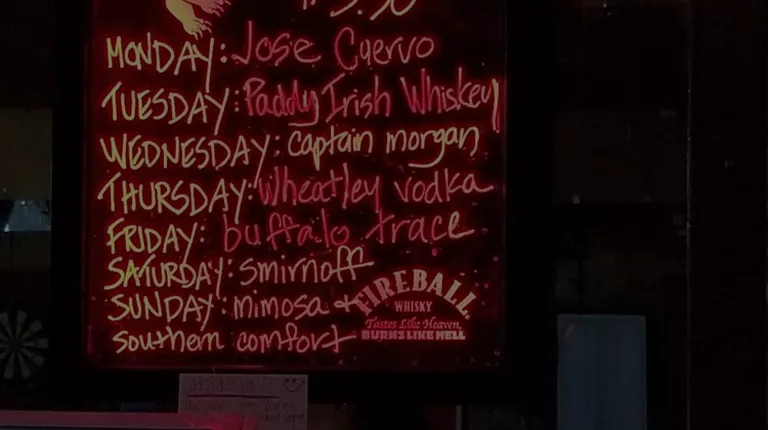 MONDAY: Jose Cuervo
TUESDAY: Paddy Irish Whiskey
WEDNESDAY: captain morgan
THURSDAY: Wheatley vodka
FRIDAY: buffalo trace
SATURDAY: smirnoff
SUNDAY: mimosa +
southern comfort
FIREBALL
WHISKY
Tastes Like Heaven,
BURNS LIKE HELL